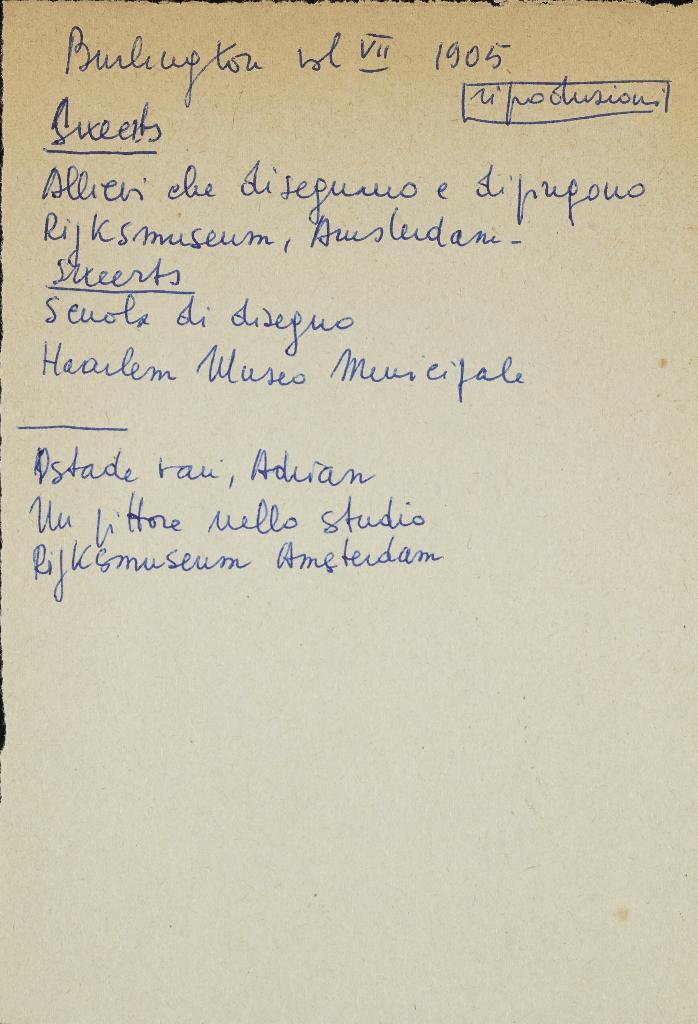 Burlington vol VII 1905
riproduzioni
Sweerts
Allievi che disegnano e dipingono
Rijksmuseum, Amsterdam -
Sweerts
Scuola di disegno
Haarlem Museo Municipale
Ostade van, Adrian
Un pittore nello studio
Rijksmuseum Amsterdam